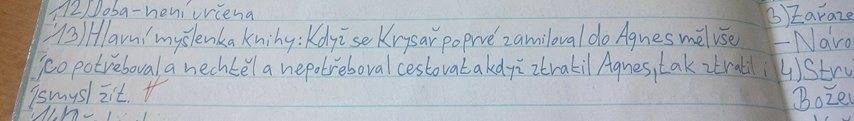 12) Doba - není určena
13) Hlavní myšlenka knihy: Když se Krysař poprvé zamiloval do Agnes měl vše
co potřeboval a nechtěl a nepotřeboval cestovat a když ztratil Agnes, tak ztratil i
smysl žít.
3) Zařaze
- Náro
4) Stru
Božev